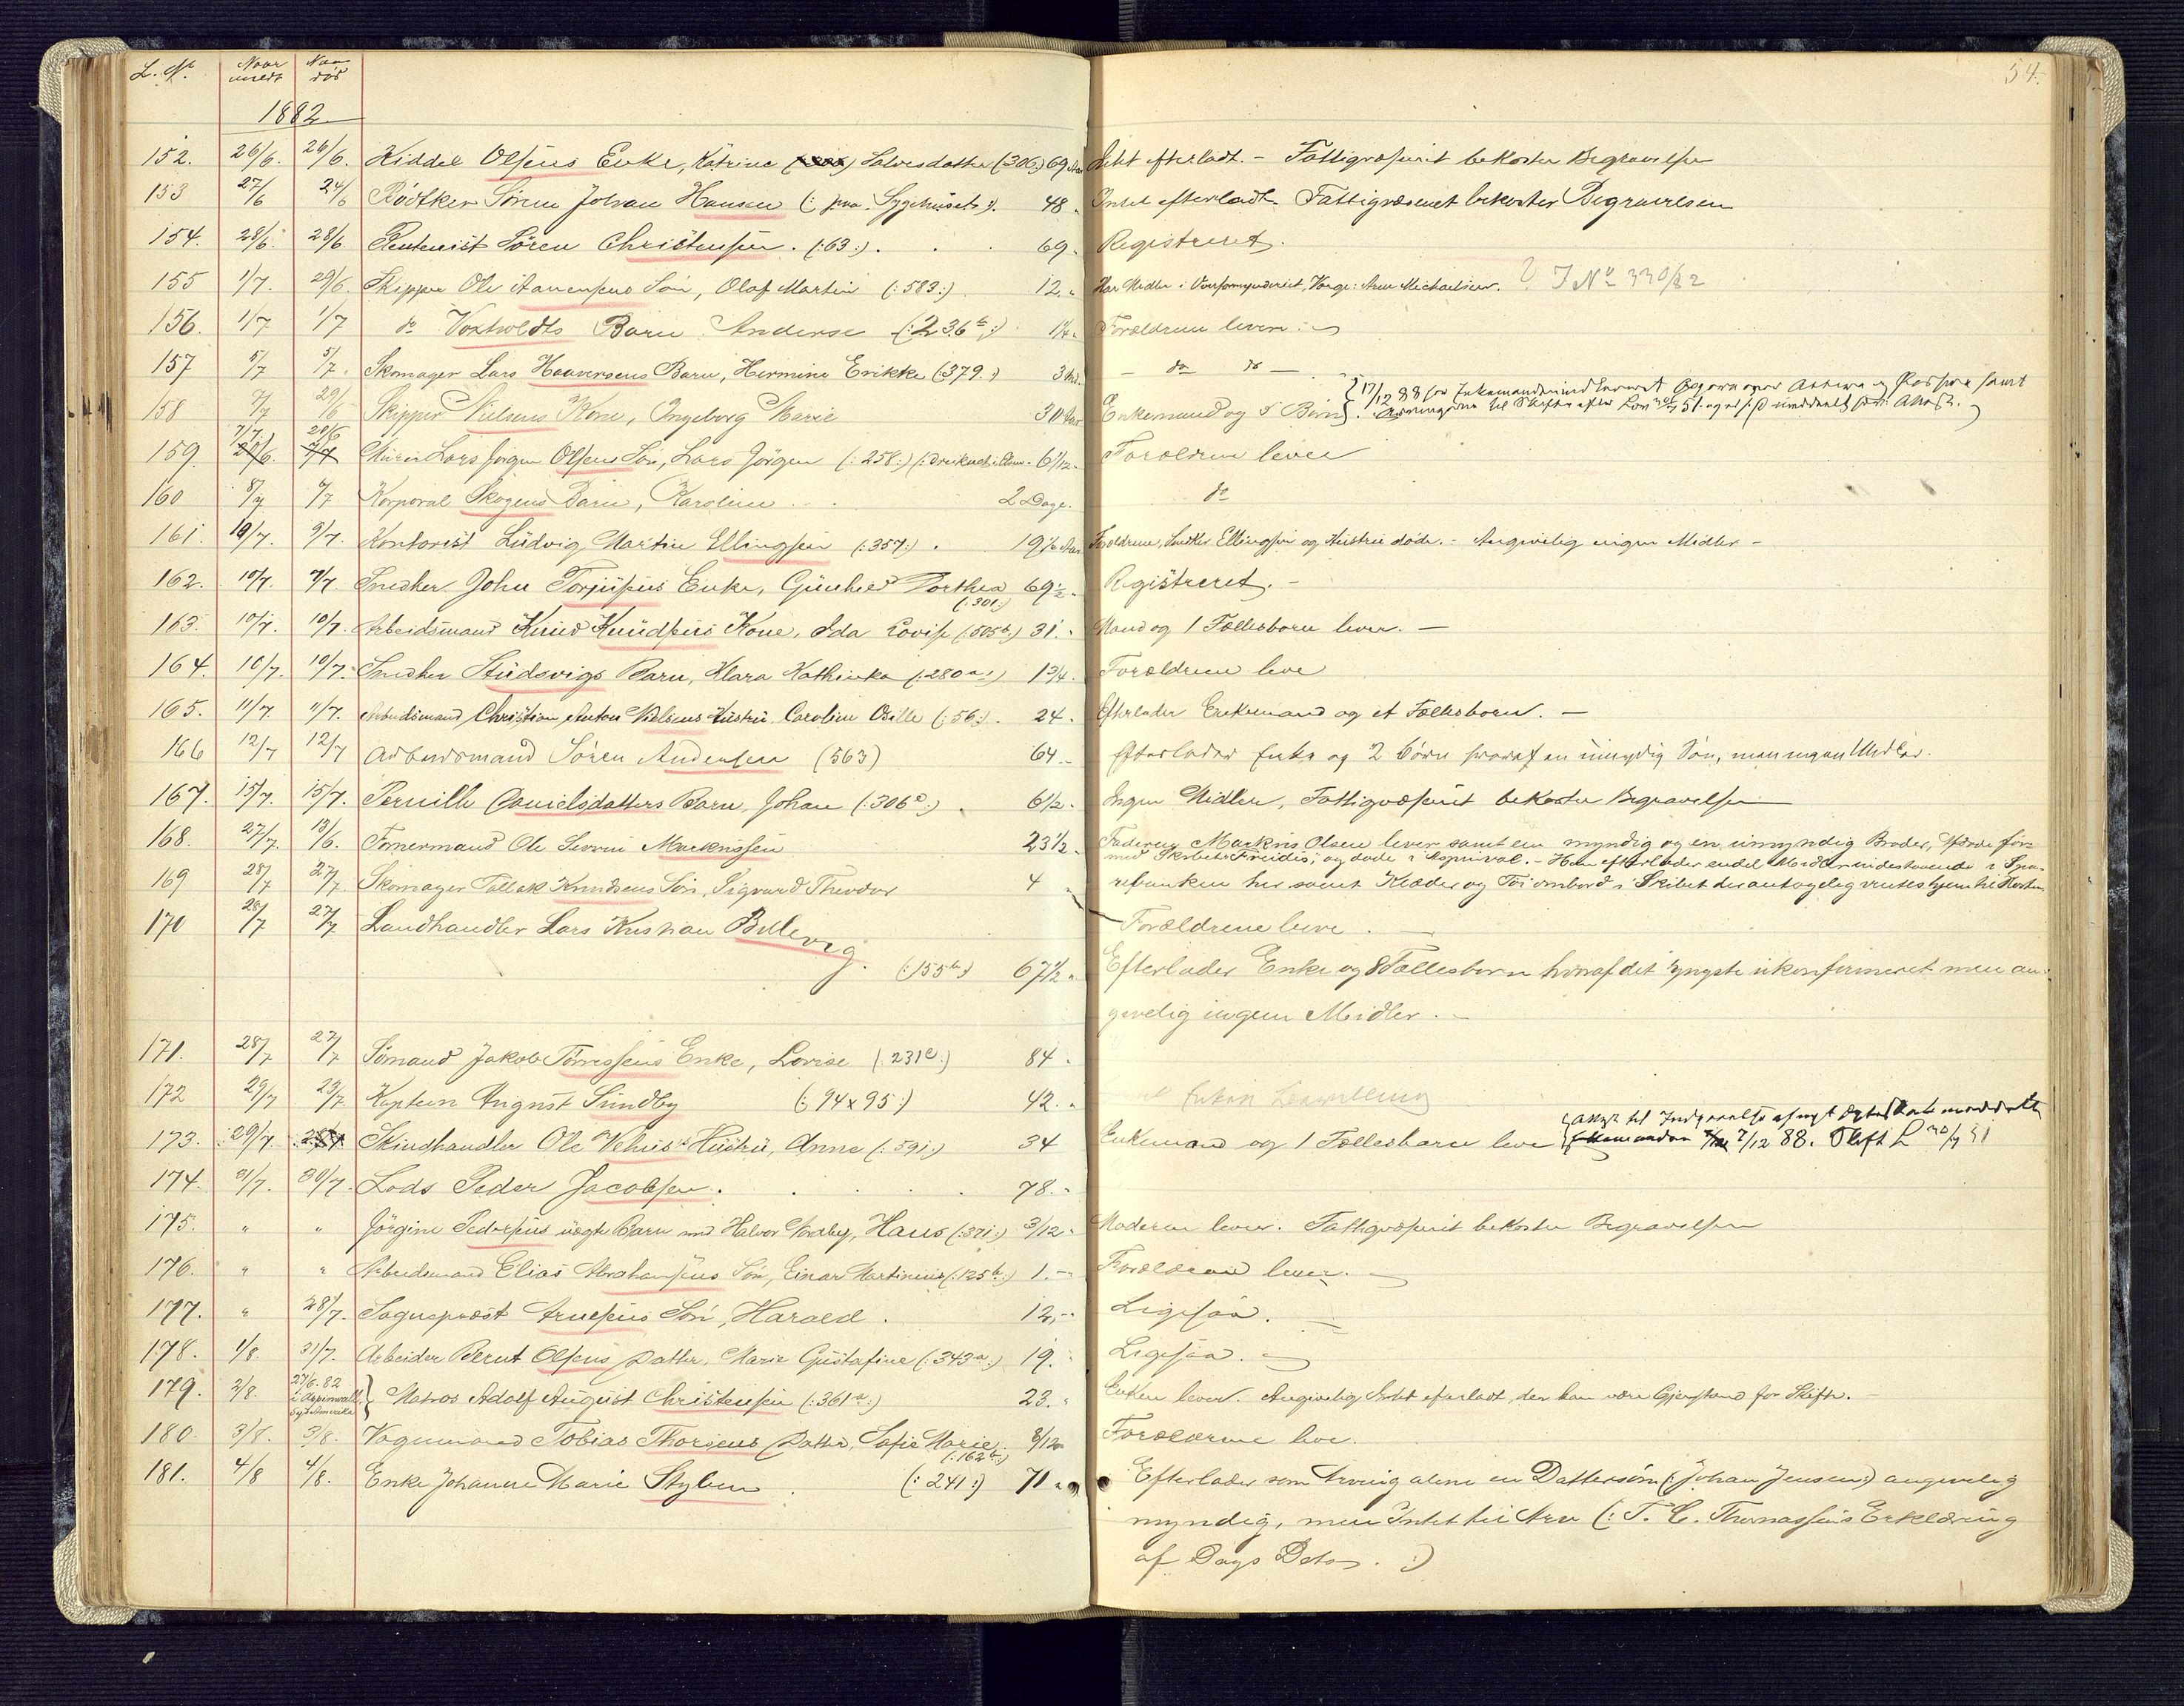 54.
L. No Naar meldt Naar død
1882
152. 26/6. 26/6. Kiddel Olsens Enke, Katrine Salvesdatter (:306:) 69 Aar Intet efterladt. - Fattigvæsenet bekoster Begravelsen
153 27/6 24/6 Rødtker Søren Johan Hansen (: paa Sygehuset :). 48 " Intet efterladt. Fattigvæsenet bekoster Begravelsen
154. 28/6. 28/6 Rentenist Søren Christensen. (:63:). 69 " Registreret.
155 1/7. 29/6. Skipper Ole Aanensens Søn, Olaf Martin (:583:). 12 " Har Midler i Overformynderiet, Værge: Arne Michaelsen. ? J No 330/82
156. 1/7 1/7 do Voxtvoldts Barn Anderse (:236b:) 1 1/4 " Forældrene lever
157 5/7 5/7. Skomager Lars Haaversens Barn, Hermine Erikke (:379:) 3 Md. - do do -
158 7/7 29/6 Skipper Nielsens Kone, Ingeborg Marie 30 Aar Enkemand og 5 Børn
{17/12 88 for Enkemanden
til Skifte efter Lov 30/7 51.
159. 7/7 20/6 Murer Lars Jørgen Olsens Søn, Lars Jørgen (:258:) 6 1/12 " Forældrene lever
160 8/7 7/7 Korporal Skogens Barn, Karoline 2 Dage. do
161. 10/7. 9/7. Kontorist Ludvig Martin Ellingsen (:357:). 19 1/2 Aar Forældrene, Snedker Ellingsen og Hustru døde. - Angivelig ingen Midler -
162. 10/7. 7/7. Snedker John Torjusens Enke, Gunhild Dorthea 69 1/2 " Registreret. -
(:301:)
163. 10/7. 10/7. Arbeidsmand Knud Knudsens Kone, Ida Lovise (:505b:) 31 " Mand og 1 Fællesbarn lever. -
164. 10/7. 10/7. Snedker Studsvigs Barn, Klara Kathinka (:280a:) 1 3/4 " Forældrene leve
165. 11/7 11/7. Arbeidsmand Christian Anton Nielsens Hustru Caroline Osille (:56:). 24 " Efterlader Enkemand og et Fællesbarn. -
166 12/7 12/7 Arbeidsmand Søren Andersen (563) 64 " Efterlader Enke og 2 Børn hvoraf en umyndig Søn, men ingen Midler.
167. 15/7. 15/7. Pernille Danielsdatters Barn, Johan (:306c:). 6 1/2 " Ingen Midler, Fattigvæsenet bekoster Begravelsen
168. 27/7. 13/6. Tømermand Ole Severin Markussen 23 1/2 " Faderen Markus Olsen lever samt en myndig og en umyndig Broder, Afdøde for
med Skibet Freidis, og døde i Aspinval. - Han efterlader endel Midler indestaaende i Spa-
rebanken her samt Klæder og Tøi ombord i Skibet der antagelig ventes hjem til Høsten
169 28/7 27/7 Skomager Tallak Knudsens Søn, Sigvard Theodor 4 " Forældrene leve. -
170 28/7 27/7 Landhandler Lars Kristian Bellevig.
(:155b:) 67 1/2 " Efterlader Enke og 8 Fællesbørn hvoraf det yngste ukonfirmeret men an-
givelig ingen Midler. -
171. 28/7 27/7 Sømand Jakob Tønnessens Enke, Lovise (231e:) 84 "
172 29/7 29/7 Kaptein August Sundby (:94 x 95:) 42 " Enken Bevilling
173. 29/7. Skindhandler Ole Vehus's Hustru, Anne (:591:) 34 Enkemand og 1 Fællesbarn leve
{Attest til Indgaaelse af nyt Ægteskab meddelt
7/12 88. L 30/7 51
174. 31/7. 30/7. Lods Peder Jacobsen. 78. "
175. " " Jørgine Pedersens uægte Barn med Halvor Nordby, Hans (:371:) 3/12 " Moderen lever. Fattigvæsenet bekoster Begravelsen
176. " " Arbeidsmand Elias Abrahamsens Søn, Einar Martinius (:125b:) 1. " Forældrene lever. -
177. " 28/7. Sognepræst Arnesens Søn, Harald. 12. " Ligesaa. -
178. 1/8. 31/7. Arbeider Bernt Olsens Datter, Marie Gustafine (:343a:) 19. " Ligesaa. -
179. 2/8. 27/6. 82 i Aspinwall Sydamerika } Matros Adolf August Christensen (:361a:) 23. " Enken lever. Angivelig Intet efterladt, der kan være Gjenstand for Skifte. -
180. 3/8. 3/8. Vognmand Tobias Thorsens Datter, Sofie Marie, 8/12 " Forældrene leve.
(:162b:)
181. 4/8 4/8. Enke Johanne Marie Styben (:241:) 71 " Efterlader som Arving alene en Dattersøn (:Johan Jensen:) angivelig
myndig, men Intet til Arv (: T. C. Thomassens Erklæring
af Dags Dato. :)